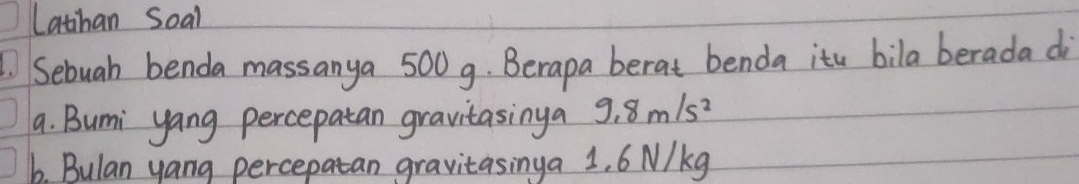 Latihan Soal
1. Sebuah benda massanya 500 g. Berapa berat benda itu bila berada di
a. Bumi yang percepatan gravitasinya 9,8 m/s²
b. Bulan yang percepatan gravitasinya 1,6 N/kg